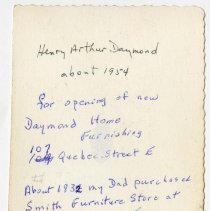 Henry Arthur Daymond
about 1954
for opening of new
Daymond Home
Furnishing
107
Quebec Street E
About 1932 my Dad purchased
Smith Furniture Store at